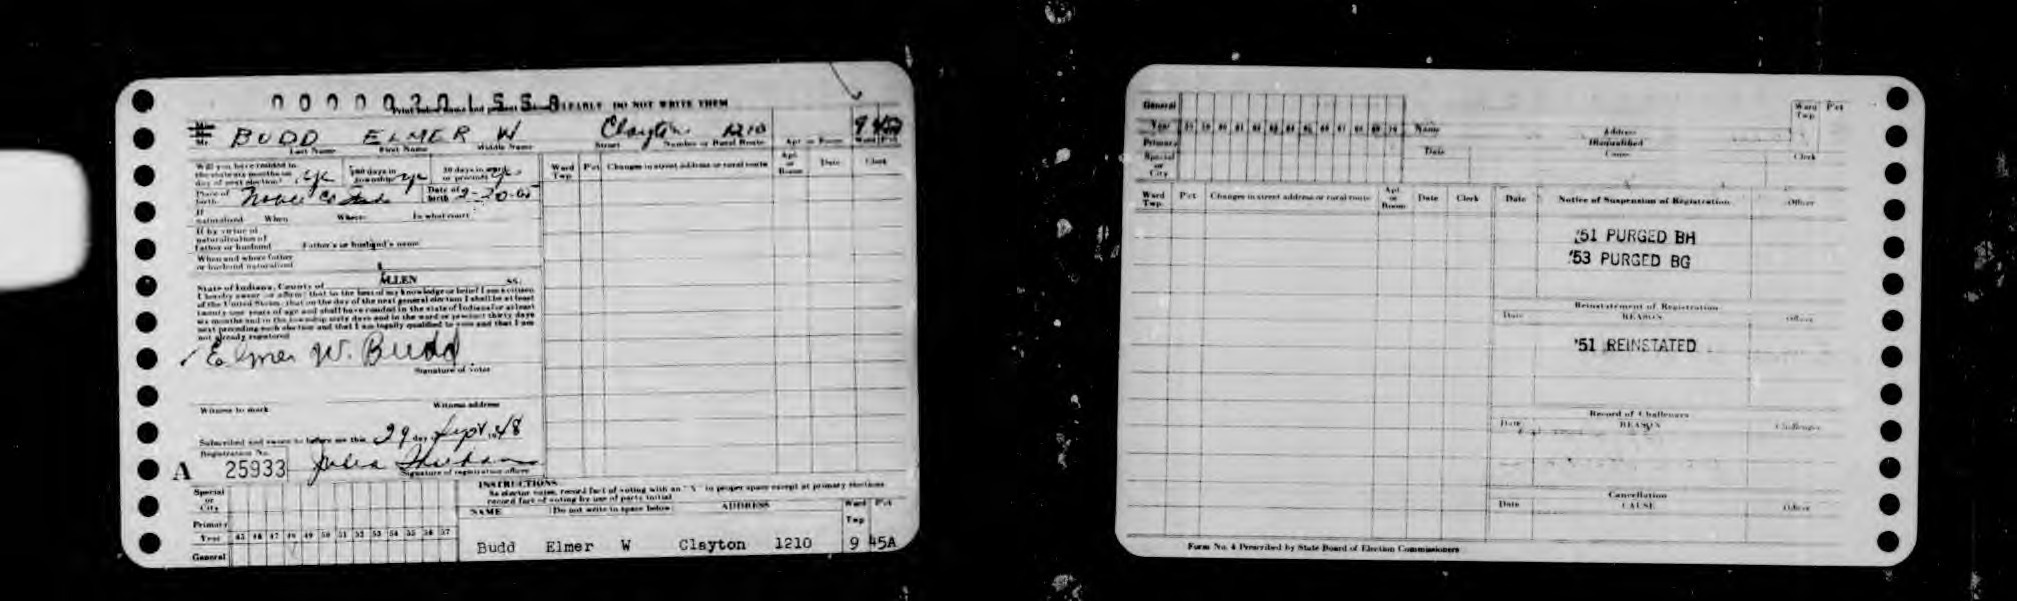 0000020158
CLEARLY DO NOT WRITE THEM
Mr. BUDD ELMER W Clayton 1210 9
Last Name First Name Middle Name Street Number or Rural Route Apt or Room Ward Pct
Will you have resided in the state six months on day of next election? yes 60 days in township yes 30 days in ward or precinct yes
Ward Twp. Pct Changes in street address or rural route Apt. or Room Date Clerk
Place of birth Noble Co Date of birth 2-20-05
If naturalized When Where In what court
If by virtue of naturalization of father or husband Father's or husband's name
When and where father or husband naturalized
State of Indiana, County of ALLEN SS:
I hereby swear or affirm that to the best of my knowledge or belief I am a citizen
of the United States, that on the day of the next general election I shall be at least
twenty one years of age and shall have resided in the state of Indiana for at least
six months and in the township sixty days and in the ward or precinct thirty days
next preceding such election and that I am legally qualified to vote and that I am
not already registered
Elmer W. Budd
Signature of voter
Witness to mark Witness address
Subscribed and sworn to before me this 29 day of Sept 1948
Registration No.
A 25933 Julia
Signature of registration officer
INSTRUCTIONS
As elector votes, record fact of voting with an "X" in proper space except at primary elections
record fact of voting by use of party initial
Special or City
Primary
Year 45 46 47 48 49 50 51 52 53 54 55 56 57
General
NAME (Do not write in space below) ADDRESS Ward Twp Pct
Budd Elmer W Clayton 1210 9 45A
General
Year 58 59 60 61 62 63 64 65 66 67 68 69 70 Name Address Ward Twp. Pct
Primary Disqualified
Special or City Date Cause Clerk
Ward Twp. Pct Changes in street address or rural route Apt. or Room Date Clerk Date Notice of Suspension of Registration Officer
'51 PURGED BH
'53 PURGED BG
Reinstatement of Registration
Date REASON Officer
'51 REINSTATED
Record of Challenges
Date REASON Challenger
Cancellation
Date CAUSE Officer
Form No. 4 Prescribed by State Board of Election Commissioners